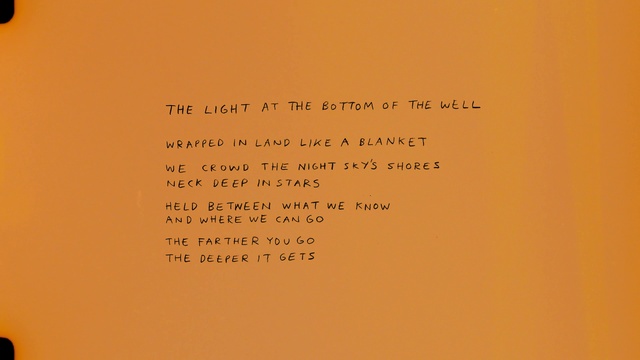 THE LIGHT AT THE BOTTOM OF THE WELL
WRAPPED IN LAND LIKE A BLANKET
WE CROWD THE NIGHT SKY'S SHORES
NECK DEEP IN STARS
HELD BETWEEN WHAT WE KNOW
AND WHERE WE CAN GO
THE FARTHER YOU GO
THE DEEPER IT GETS